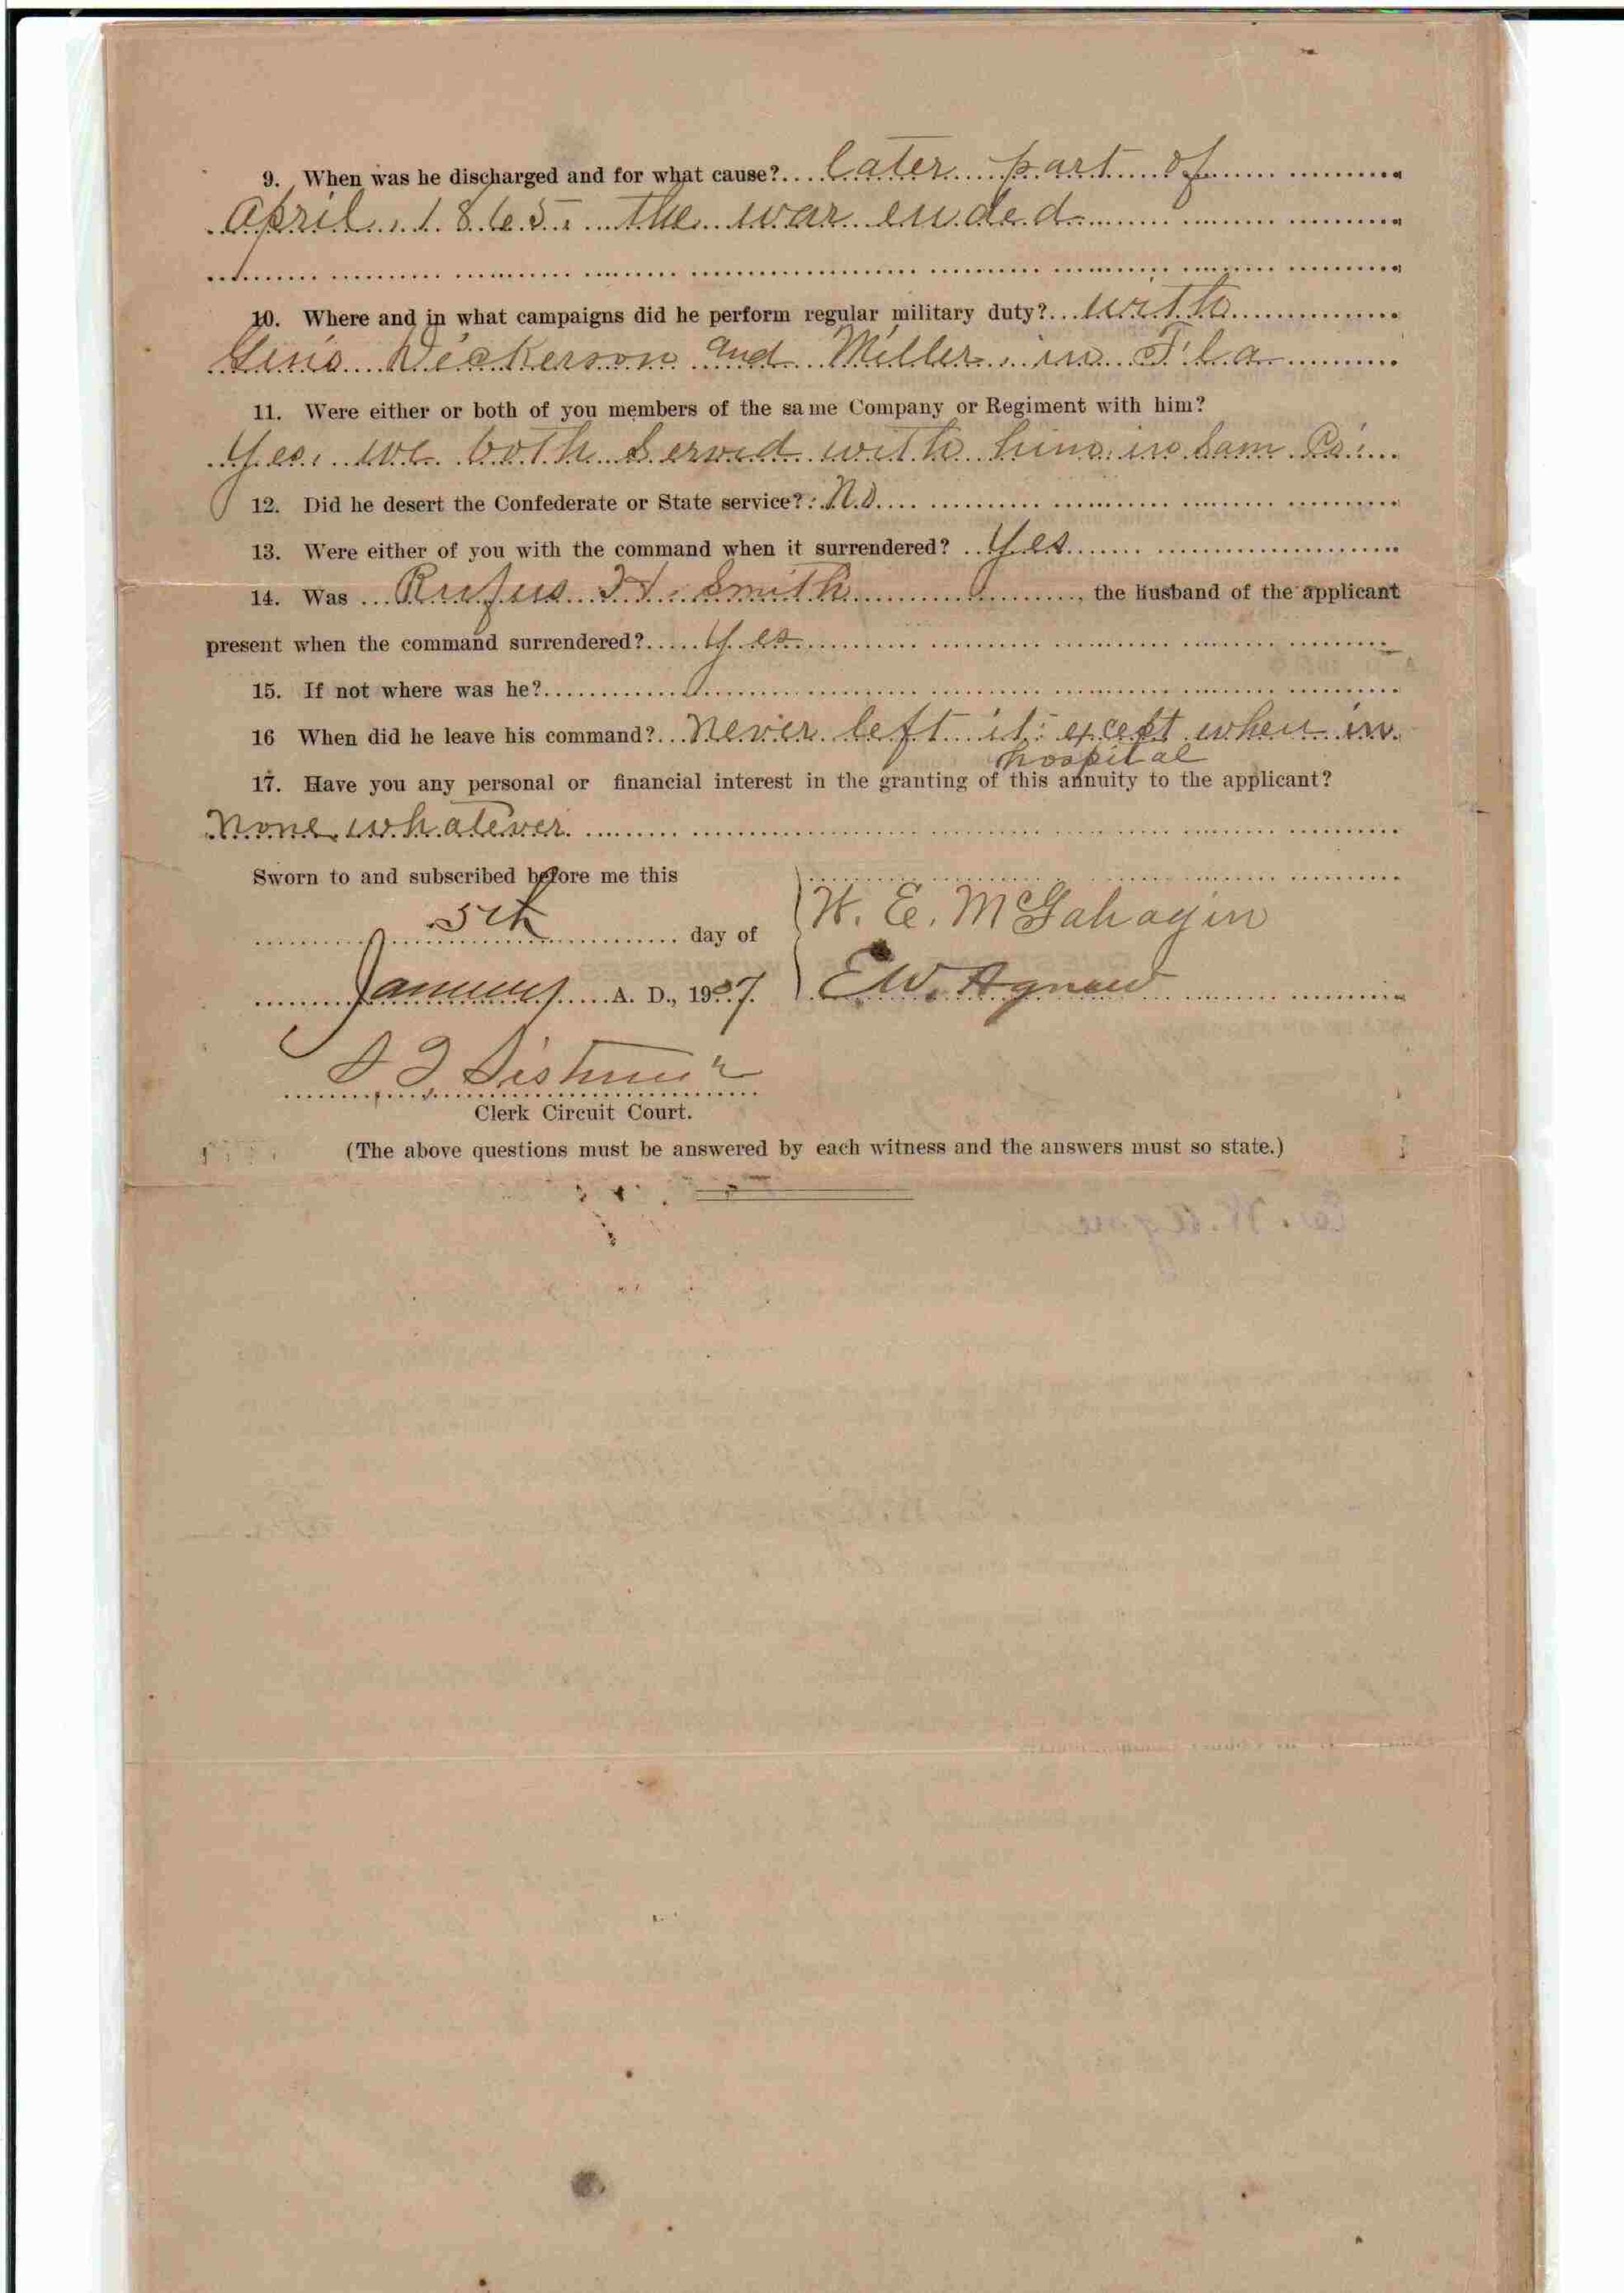 9. When was he discharged and for what cause? later part of
April, 1865, the war ended
10. Where and in what campaigns did he perform regular military duty? with
Gens Dickerson and Miller, in Fla
11. Were either or both of you members of the same Company or Regiment with him?
Yes, we both served with him in sam Co.
12. Did he desert the Confederate or State service? No
13. Were either of you with the command when it surrendered? Yes
14. Was Rufus H. Smith, the husband of the applicant
present when the command surrendered? Yes
15. If not where was he?
16 When did he leave his command? never left it except when in
hospital
17. Have you any personal or financial interest in the granting of this annuity to the applicant?
None whatever
Sworn to and subscribed before me this
5th day of
W. E. McGahagin
January A. D., 1907.
E.W. Agnew
S. T. Sistrunk
Clerk Circuit Court.
(The above questions must be answered by each witness and the answers must so state.)